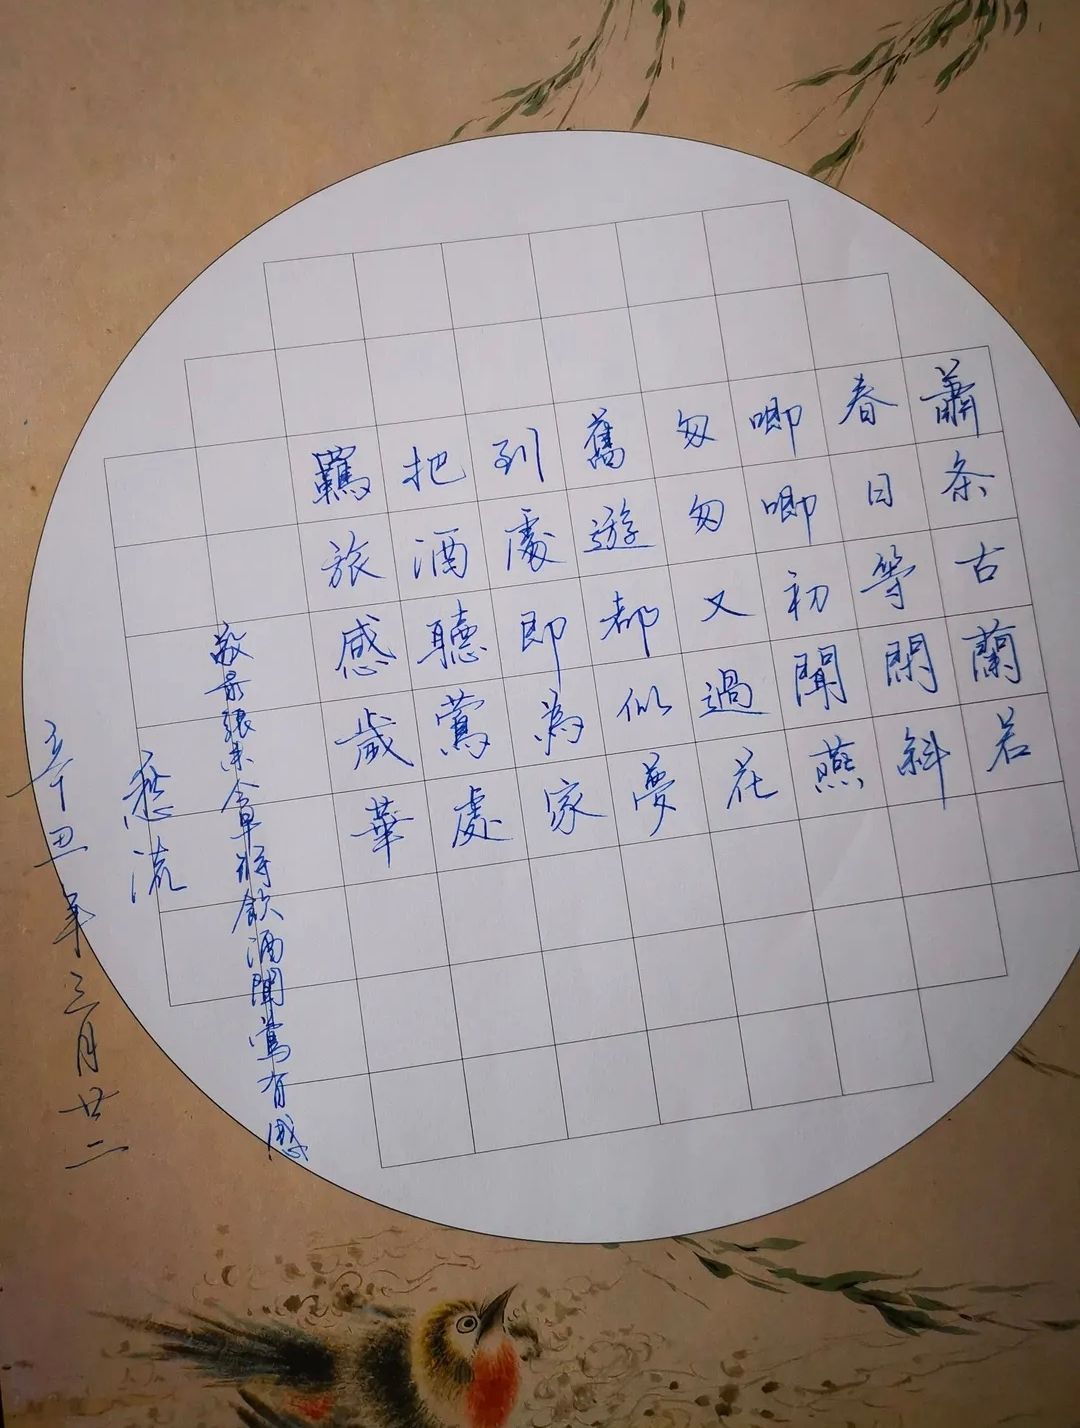 蕭条古蘭若
春日等閑斜
唧唧初聞燕
匆匆又過花
舊遊都似夢
到處即為家
把酒聽鶯處
羈旅感歲華
張未含章將飲酒聞鶯有感
愁流
辛丑年三月廿二